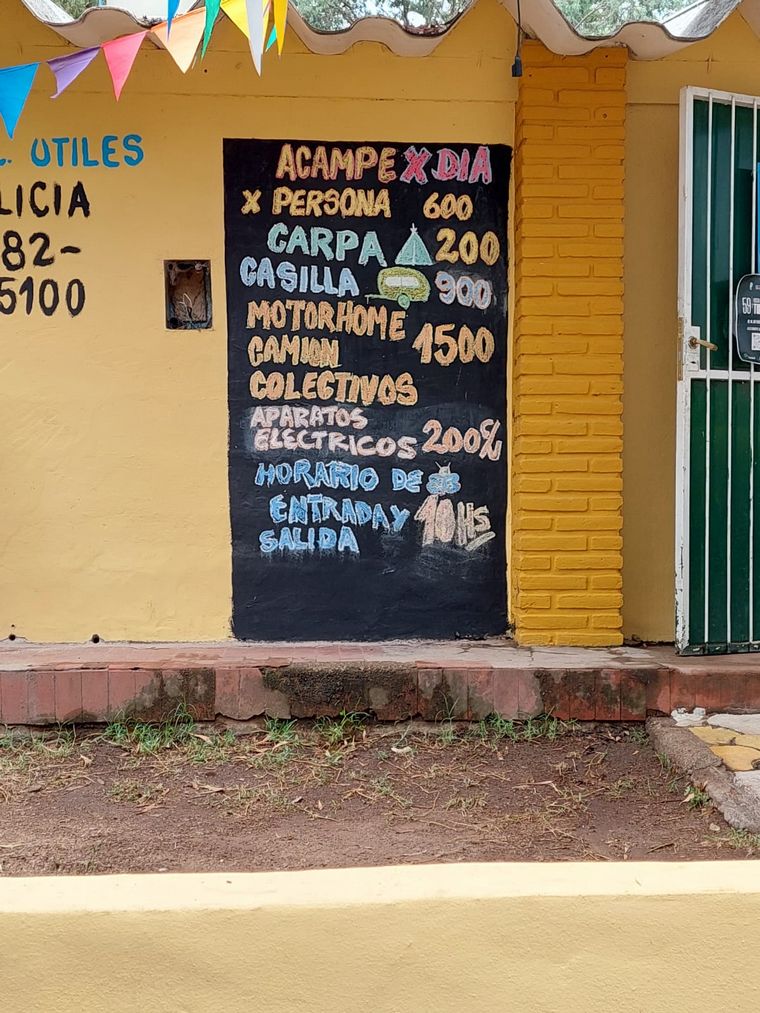 . UTILES
LICIA
82-
5100
ACAMPE X DIA
X PERSONA 600
CARPA 200
CASILLA 900
MOTORHOME
CAMION 1500
COLECTIVOS
APARATOS
ELECTRICOS 200
HORARIO DE
ENTRADA Y 10HS
SALIDA
59